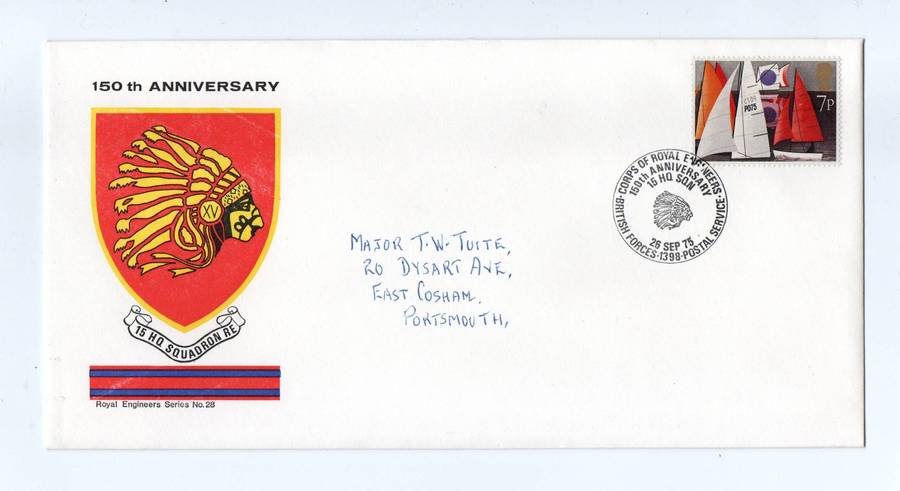 150 th ANNIVERSARY
XV
15 HQ SQUADRON RE
Royal Engineers Series No.28
MAJOR T.W. TUITE,
20 DYSART AVE,
EAST COSHAM.
PORTSMOUTH,
7P
P075
CORPS OF ROYAL ENGINEERS
150th ANNIVERSARY
15 HQ SQN
26 SEP 75
BRITISH FORCES·1398·POSTAL SERVICE